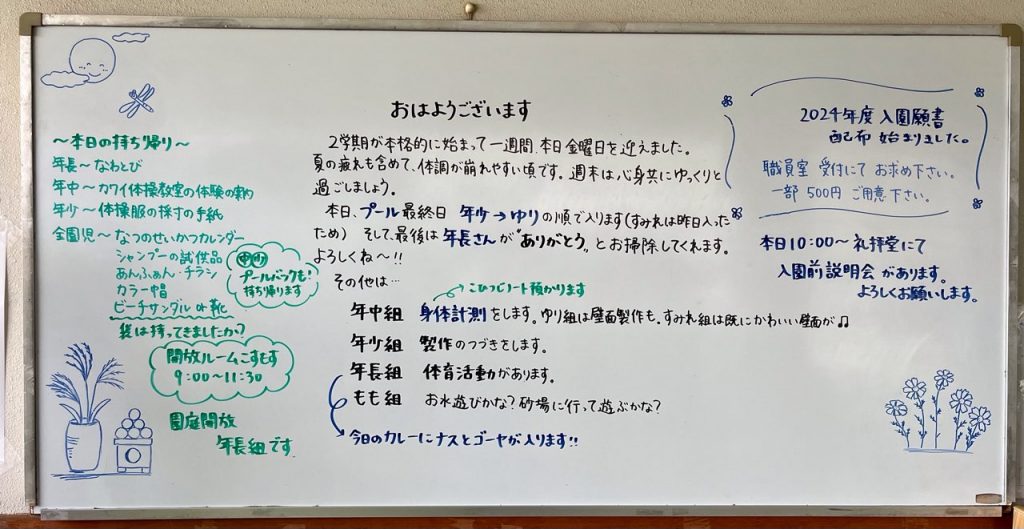 おはようございます
～本日の持ち帰り～
年長～なわとび
年中～カワイ体操教室の体験の案内
年少～体操服の採寸の手紙
全園児～なつのせいかつカレンダー
シャンプーの試供品
あんふぁん・チラシ
カラー帽
ビーチサンダル or 靴
袋は持ってきましたか?
中 少
プールバックも!
持ち帰ります
開放ルームこすもす
9:00～11:30
園庭開放
年長組です
2学期が本格的に始まって一週間、本日金曜日を迎えました。
夏の疲れも含めて、体調が崩れやすい頃です。週末は心身共にゆっくりと
過ごしましょう。
本日、プール最終日 年少→ゆりの順で入ります(すみれは昨日入っ
たため) そして、最後は年長さんが“ありがとう”とお掃除してくれます。
よろしくね～!!
その他は…
こひつじノート預かります
年中組 身体計測をします。ゆり組は壁面製作も。すみれ組は既にかわいい壁面が♫
年少組 製作のつづきをします。
年長組 体育活動があります。
もも組 お水遊びかな?砂場に行って遊ぶかな?
今日のカレーにナスとゴーヤが入ります!!
2024年度入園願書
配布 始まりました。
職員室 受付にて お求め下さい。
一部 500円 ご用意下さい。
本日10:00～礼拝堂にて
入園前説明会があります。
よろしくお願いします。